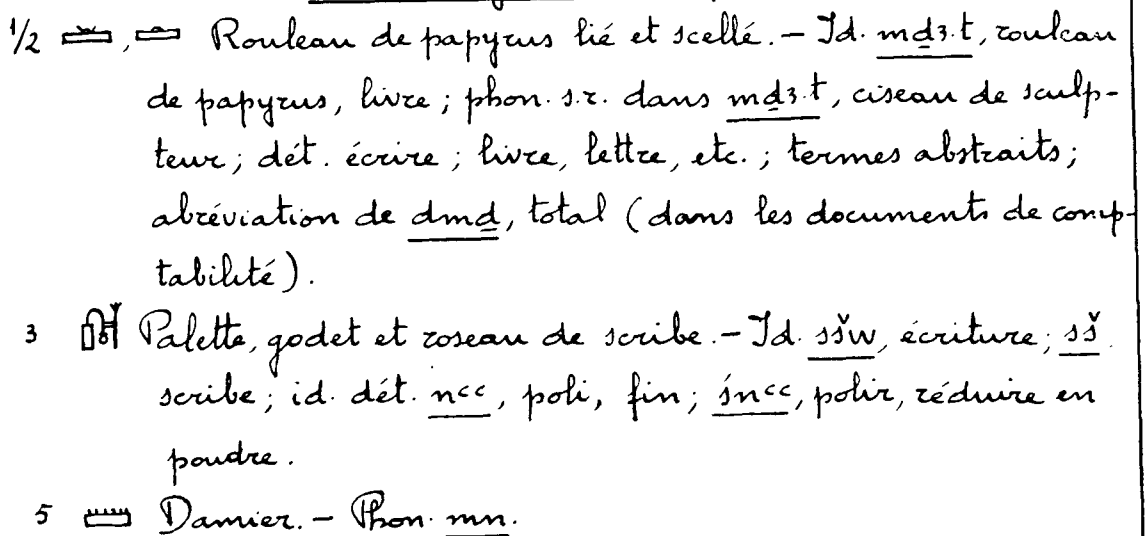 1/2 𓏛, 𓏜 Rouleau de papyrus lié et scellé. – Id. mḏꜣ.t, rouleau
de papyrus, livre ; phon. s.r. dans mḏꜣ.t, ciseau de sculp-
teur ; dét. écrire ; livre, lettre, etc. ; termes abstraits ;
abréviation de dmḏ, total (dans les documents de comp-
tabilité).
3 𓏞 Palette, godet et roseau de scribe. – Id. sšw, écriture ; sš
scribe ; id. dét. nꜥꜥ, poli, fin ; śnꜥꜥ, polir, réduire en
poudre.
5 𓏠 Damier. – Phon. mn.